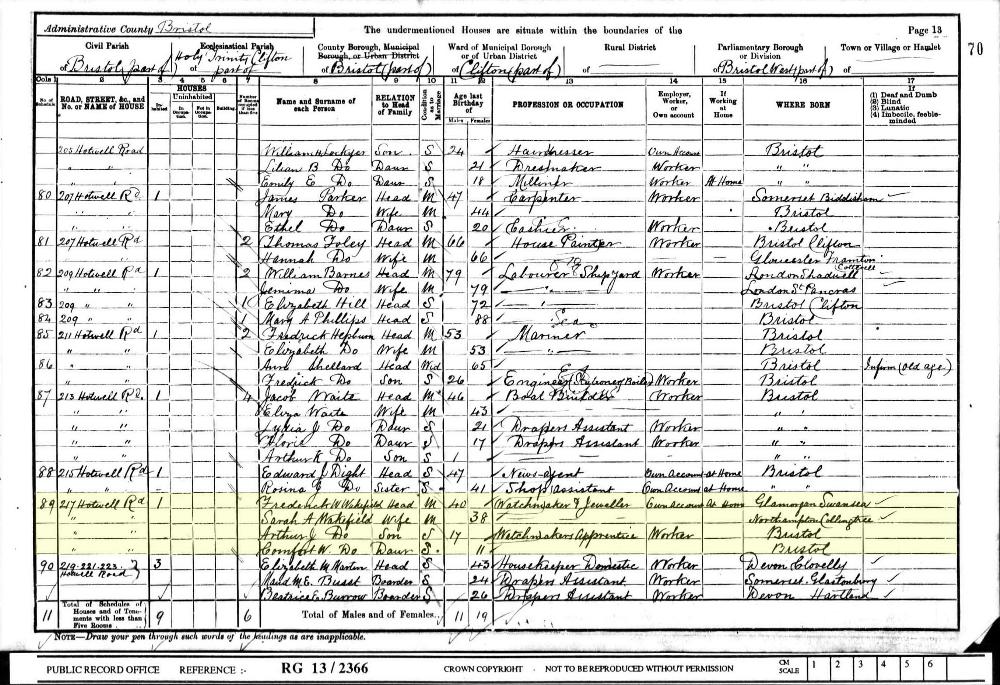 Administrative County Bristol The undermentioned Houses are situate within the boundaries of the Page 13
70
Civil Parish Ecclesiastical Parish County Borough, Municipal Borough, or Urban District Ward of Municipal Borough or of Urban District Rural District Parliamentary Borough or Division Town or Village or Hamlet
of Bristol (part of) of Holy Trinity Clifton part of of Bristol (part of) of Clifton (part of) of of Bristol West (part of) of
Cols 1 2 3 4 5 6 7 8 9 10 11 12 13 14 15 16 17
No. of Schedule ROAD, STREET, &c., and No. or NAME of HOUSE HOUSES Inhabited Uninhabited In Occupation Not in Occupation Building Number of Rooms occupied if less than five Name and Surname of each Person RELATION to Head of Family Condition as to Marriage Age last Birthday of Males Females PROFESSION OR OCCUPATION Employer, Worker, or Own account If Working at Home WHERE BORN (1) Deaf and Dumb (2) Blind (3) Lunatic (4) Imbecile, feeble-minded
205 Hotwell Road William H Lockyer Son S 24 Hairdresser Own Account Bristol
" " Lilian B Do Daur S 21 Dressmaker Worker " "
" " Emily E Do Daur S 18 Milliner Worker At Home " "
80 207 Hotwell Rd 1 James Parker Head M 47 Carpenter Worker Somerset Biddisham
" " Mary Do Wife M 44 Bristol
" " Ethel Do Daur S 20 Cashier Worker Bristol
81 207 Hotwell Rd 2 Thomas Foley Head M 66 House Painter Worker Bristol Clifton
Hannah Do Wife M 66 Gloucester Framton Cotterell
82 209 Hotwell Rd 1 2 William Barnes Head M 79 Labourer Shipyard Worker London Shadwell
" " Jemima Do Wife M 79 " London St Pancras
83 209 " " 1 Elizabeth Hill Head S 72 Bristol Clifton
84 209 " 1 Mary A Phillips Head S 88 Bristol
85 211 Hotwell Rd 1 2 Fredrick Hepburn Head M 53 Mariner Sea Bristol
" " Elizabeth Do Wife M 53 " Bristol
86 " " Ann Shellard Head Wid 65 Bristol Infirm (old age)
" " Fredrick Do Son S 26 Engineer (Stationery Boiler) Worker Bristol
87 213 Hotwell Rd 1 4 Jacob Waite Head M 46 Boat Builder Worker Bristol
" " Eliza Waite Wife M 43 " "
" " Lydia J Do Daur S 21 Drapers Assistant Worker " "
" " Florie Do Daur S 17 Drapers Assistant Worker " "
" " Arthur K Do Son S 1 " "
88 215 Hotwell Rd 1 Edward J Dight Head S 47 News-agent Own Account at Home Bristol
" " Rosina E Do Sister S 41 Shop assistant Own Account at Home " "
89 217 Hotwell Rd 1 Frederick W Wakefield Head M 40 Watchmaker & Jeweller Own Account At Home Glamorgan Swansea
" Sarah A Wakefield Wife M 38 Northampton Collingtree
" Arthur J Do Son S 17 Watchmakers Apprentice Worker Bristol
" Comfort W. Do Daur S 11 Bristol
90 219-221-223 Hotwell Road 3 Elizabeth M Martin Head S 43 Housekeeper Domestic Worker Devon Clovelly
Maud M.E. Busst Boarder S 24 Drapers Assistant Worker Somerset Glastonbury
Beatrice E. Burrow Boarder S 26 Drapers Assistant Worker Devon Hartland
11 Total of Schedules of Houses and of Tenements with less than Five Rooms 9 6 Total of Males and of Females 11 19
NOTE—Draw your pen through such words of the headings as are inappropriate.
PUBLIC RECORD OFFICE REFERENCE :- RG 13/2366 CROWN COPYRIGHT - NOT TO BE REPRODUCED WITHOUT PERMISSION CM SCALE 1 2 3 4 5 6